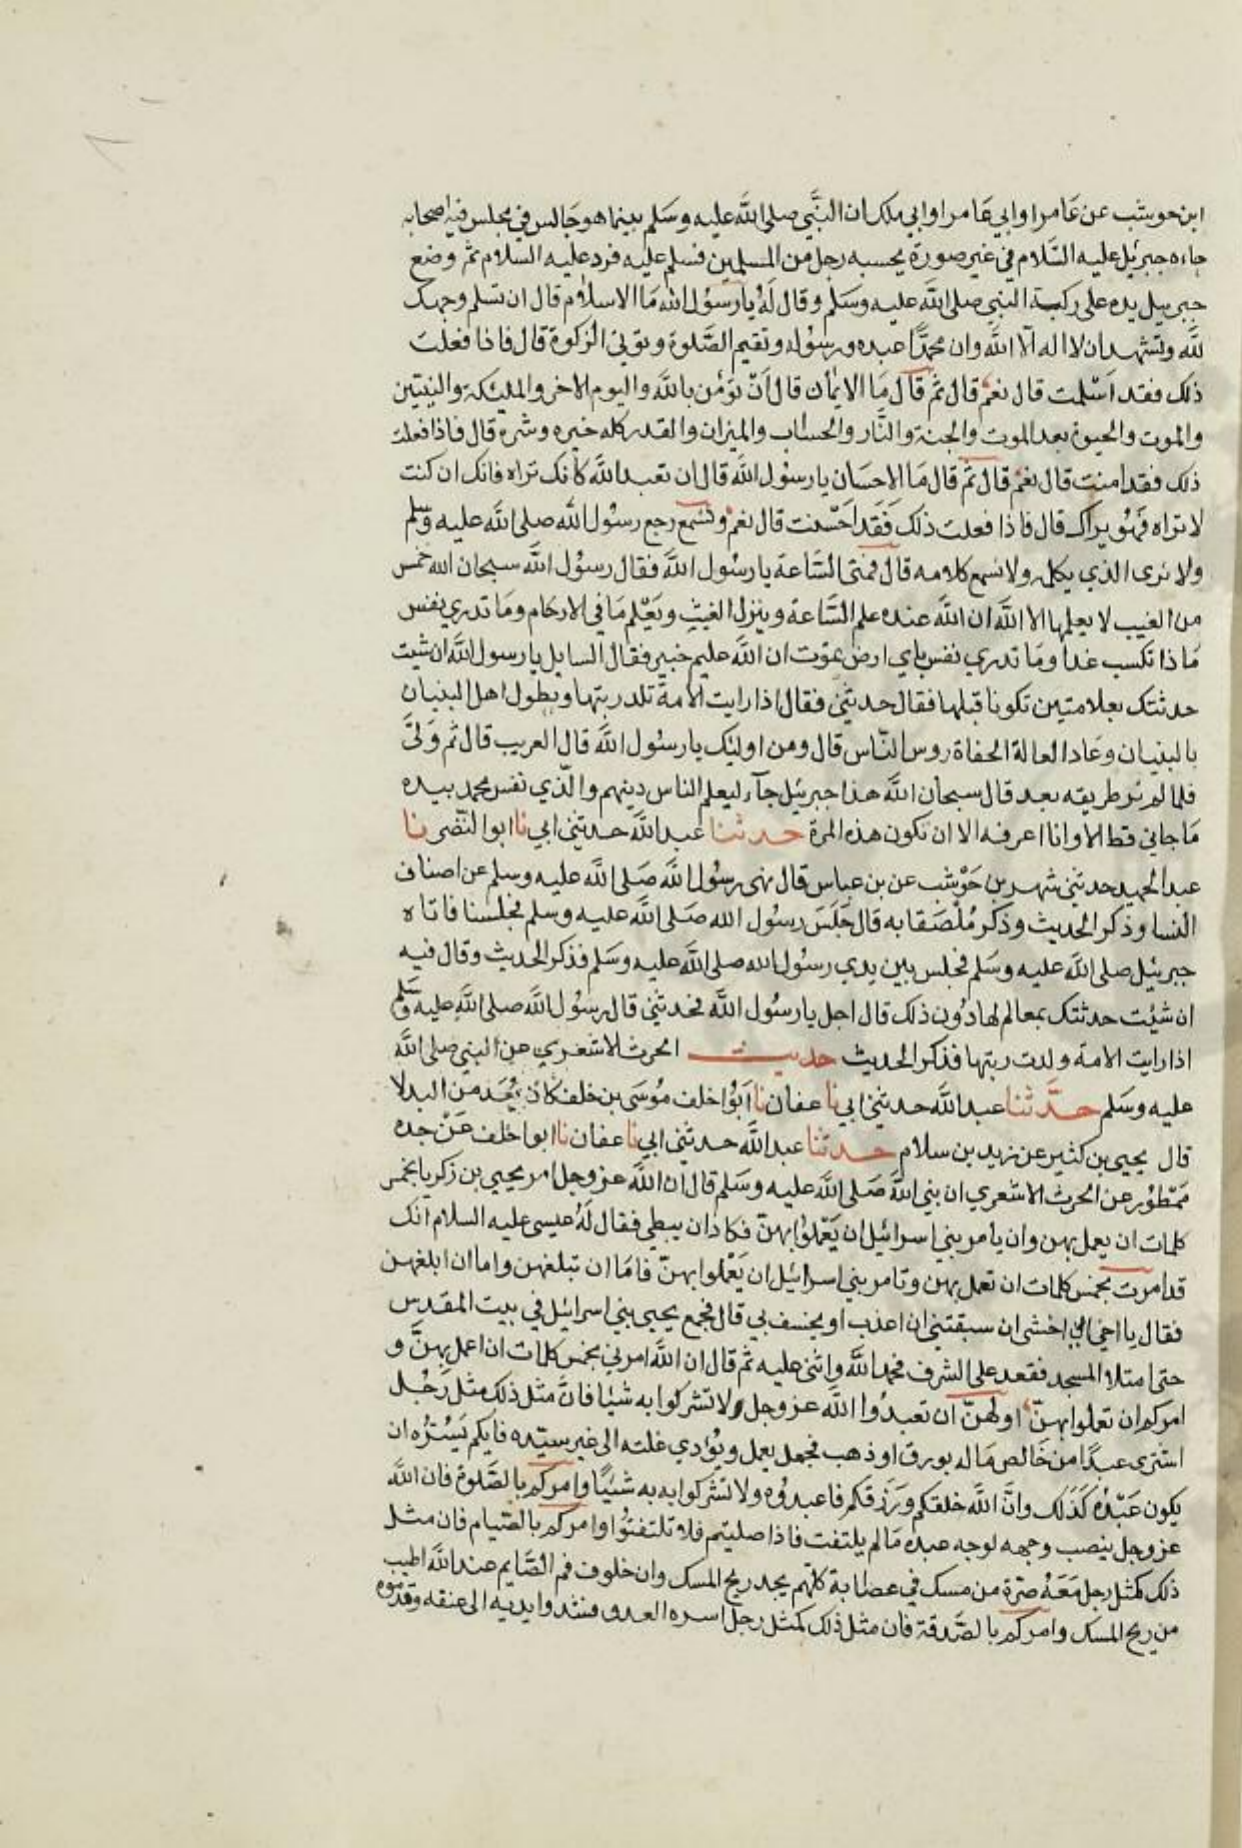 ابن حوشب عن عامر او ابي عامر او ابي ملك ان النبي صلى الله عليه وسلم بينما هو جالس في مجلس فيه اصحابه
جاءه جبرئيل عليه السلام في غير صورة يحسبه رجل من المسلمين فسلم عليه فرد عليه السلام ثم وضع
جبرييل يده على ركبة النبي صلى الله عليه وسلم وقال له يا رسول الله ما الاسلام قال ان تسلم وجهك
لله وتشهد ان لا اله الا الله وان محمدا عبده ورسوله وتقيم الصلوة وتوتي الزكوة قال فاذا فعلت
ذلك فقد اسلمت قال نعم قال ثم قال ما الايمان قال ان تؤمن بالله واليوم الاخر والملئكة والنبيين
والموت والحيوة بعد الموت والجنة والنار والحساب والميزان والقدر كله خيره وشره قال فاذا فعلت
ذلك فقد امنت قال نعم قال ثم قال ما الاحسان يا رسول الله قال ان تعبد الله كانك تراه فانك ان كنت
لا تراه فهو يراك قال فاذا فعلت ذلك فقد احسنت قال نعم ونسمع رجع رسول الله صلى الله عليه وسلم
ولا نرى الذي يكلمه ولا نسمع كلامه قال فمتى الساعة يا رسول الله فقال رسول الله سبحان الله خمس
من الغيب لا يعلمها الا الله ان الله عنده علم الساعة وينزل الغيث ويعلم ما في الارحام وما تدري نفس
ماذا تكسب غدا وما تدري نفس باي ارض تموت ان الله عليم خبير فقال السايل يا رسول الله ان شيت
حدثتك بعلامتين تكونا قبلها فقال حدثني فقال اذا رايت الامة تلد ربتها ويطول اهل البنيان
بالبنيان وعاد العالة الحفاة روس الناس قال ومن اوليك يا رسول الله قال العريب قال ثم ولى
فلما لم نر طريقه بعد قال سبحان الله هذا جبرئيل جآء ليعلم الناس دينهم والذي نفس محمد بيده
ما جاني قط الا وانا اعرفه الا ان تكون هذه المرة حدثنا عبد الله حدثني ابي نا ابو النضر نا
عبد الحميد حدثني شهر بن حوشب عن بن عباس قال نهى رسول الله صلى الله عليه وسلم عن اصناف
النسا وذكر الحديث وذكر ملصقا به قال جلس رسول الله صلى الله عليه وسلم مجلسنا فاتاه
جبرئيل صلى الله عليه وسلم فجلس بين يدي رسول الله صلى الله عليه وسلم فذكر الحديث وقال فيه
ان شئت حدثتك بمعالم لها دون ذلك قال اجل يا رسول الله فحدثني قال رسول الله صلى الله عليه وسلم
اذا رايت الامة ولدت ربتها فذكر الحديث حديث الحرث الاشعري عن النبي صلى الله
عليه وسلم حدثنا عبد الله حدثني ابي نا عفان نا ابو اخلف موسى بن خلف كان يعد من البدلا
قال يحيى بن كثير عن زيد بن سلام حدثنا عبد الله حدثني ابي نا عفان نا ابو اخلف عن جده
ممطور عن الحرث الاشعري ان نبي الله صلى الله عليه وسلم قال ان الله عز وجل امر يحيى بن زكريا بخمس
كلمات ان يعمل بهن وان يامر بني اسرائيل ان يعملوا بهن فكاد ان يبطي فقال له عيسى عليه السلام انك
قد امرت بخمس كلمات ان تعمل بهن وتامر بني اسرائيل ان يعملوا بهن فاما ان تبلغهن واما ان ابلغهن
فقال يا اخي اني اخشى ان سبقتني ان اعذب او يخسف بي قال فجمع يحيى بني اسرائيل في بيت المقدس
حتى امتلا المسجد فقعد على الشرف فحمد الله واثنى عليه ثم قال ان الله امرني بخمس كلمات ان اعمل بهن و
امركم ان تعملوا بهن اولهن ان تعبدوا الله عز وجل ولا تشركوا به شيئا فان مثل ذلك مثل رجل
اشترى عبدا من خالص ماله بورق او ذهب فجعل يعمل ويؤدي غلته الى غير سيده فايكم يسره ان
يكون عبده كذلك وان الله خلقكم ورزقكم فاعبدوه ولا تشركوا به به شيئا وامركم بالصلوة فان الله
عز وجل ينصب وجهه لوجه عبده ما لم يلتفت فاذا صليتم فلا تلتفتوا وامركم بالصيام فان مثل
ذلك كمثل رجل معه صرة من مسك في عصابة كلهم يجد ريح المسك وان خلوف فم الصايم عند الله اطيب
من ريح المسك وامركم بالصدقة فان مثل ذلك كمثل رجل اسره العدو فشدوا يديه الى عنقه وقدموه